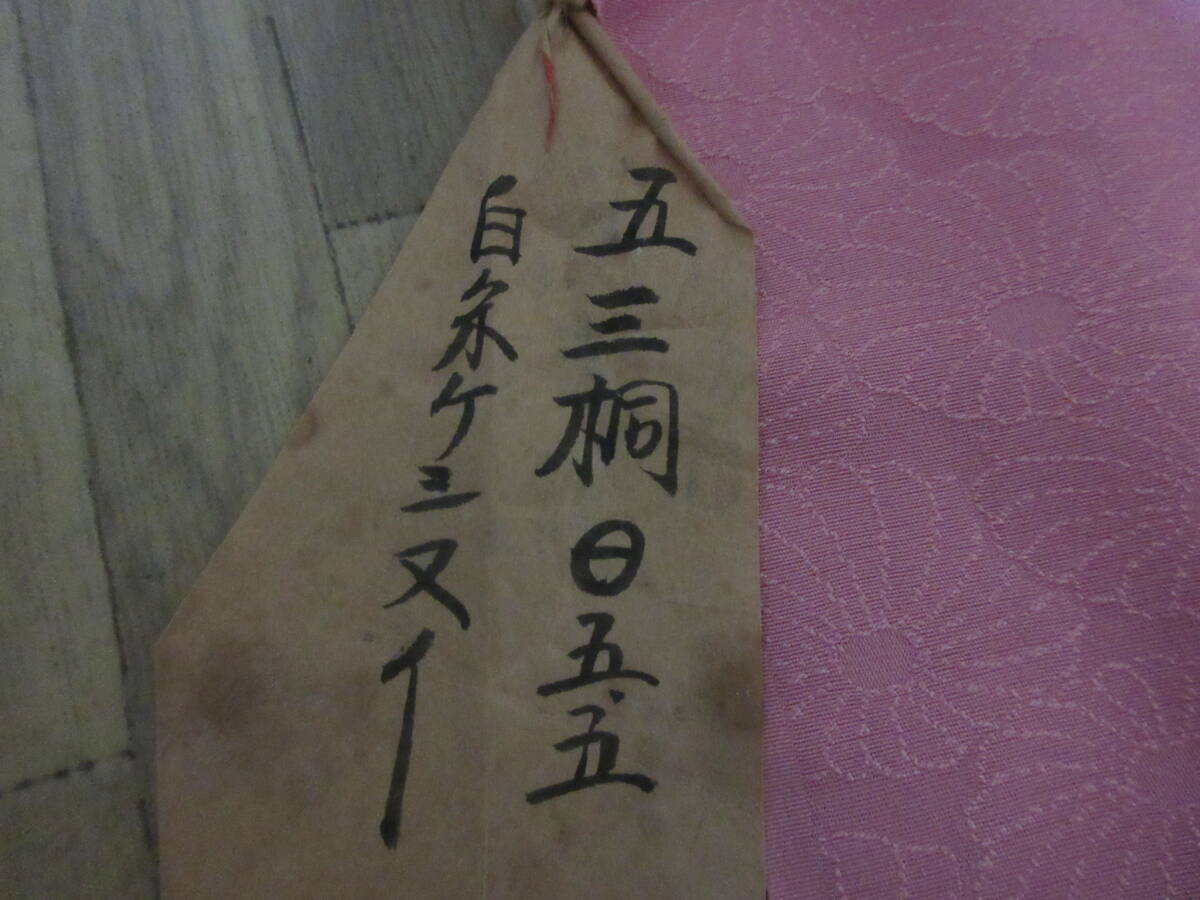 五三桐㊐五.五
白糸ケシ又イ